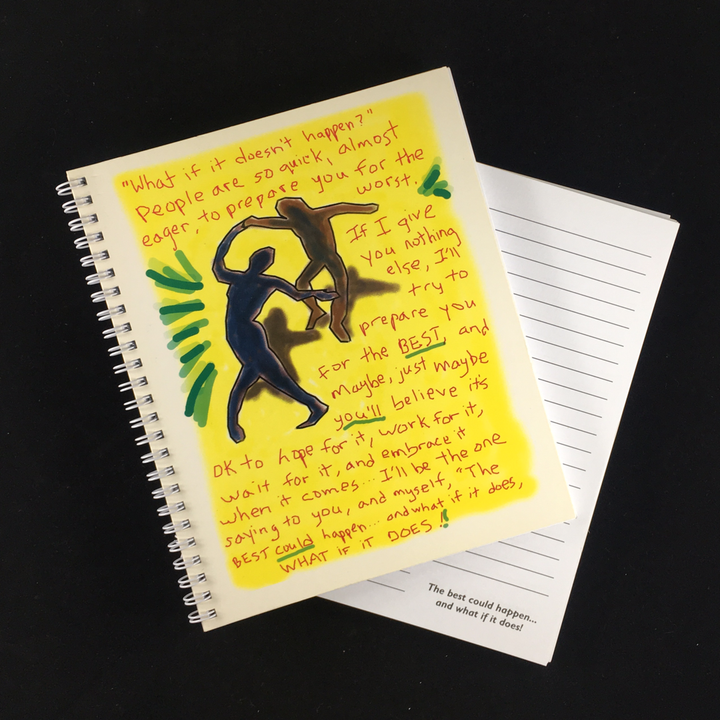 "What if it doesn't happen?"
People are so quick, almost
eager, to prepare you for the
worst.
If I give
you nothing
else, I'll
try to
prepare you
for the BEST, and
maybe, just maybe
you'll believe it's
OK to hope for it, work for it,
wait for it, and embrace it
when it comes... I'll be the one
saying to you, and myself, "The
BEST could happen... and what if it does,
WHAT IF IT DOES!!
The best could happen...
and what if it does!